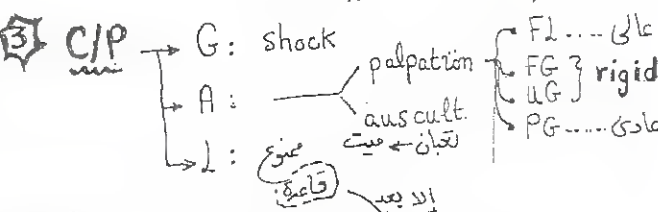 3 C/P → G: shock
A: palpation FL.... عالى
FG
UG } rigid
PG..... عادى
auscult.
تعبان ← ميت
L: ممنوع
قاعدة
إلا بعد